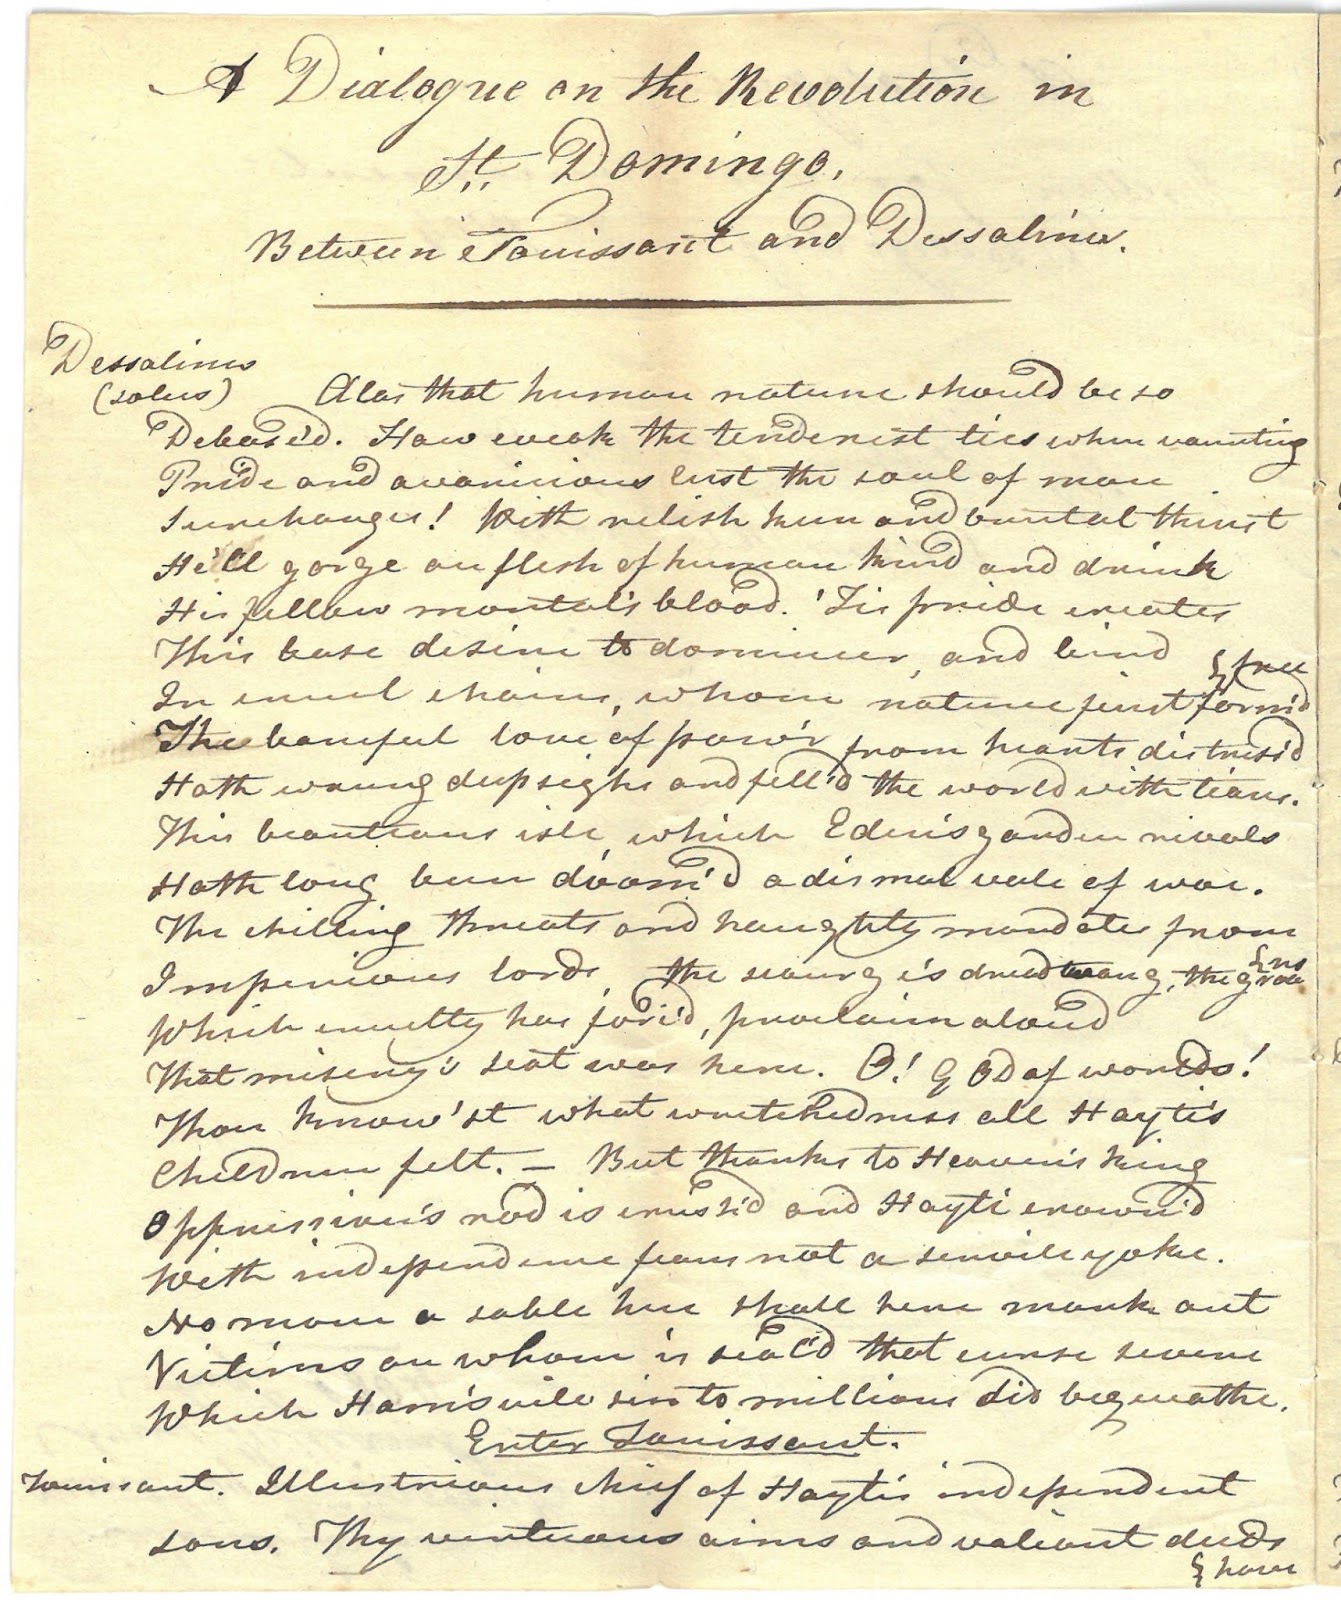 A Dialogue on the Revolution in
St. Domingo,
Between Touissant and Dessalines.
Dessalines
(solus) Alas that human nature should be so
Debas'd. How weak the tenderest ties when vaunting
Pride and avaricious lust the soul of man
Surcharges! With relish keen and brutal thirst
He'll gorge on flesh of human kind and drink
His fellow mortal's blood. 'Tis pride creates
This base desire to domineer, and bind
{ free
In cruel chains, whom nature first form'd
The baneful love of pow'r from hearts distress'd
Hath wrung deep sighs and fill'd the world with tears.
This beauteous isle, which Eden's garden rivals
Hath long been doom'd a dismal vale of woe.
The chilling threats and haughty mandates from
Imperious lords, the scourg's dread twang, the groa
{ns
Which cruelty has forc'd, proclaim aloud
That misery's seat was here. O! GOD of worlds!
Thou know'st what wretchedness all Hayti's
Children felt. — But thanks to Heaven's king
Oppression's rod is crush'd and Hayti crown'd
With independence fears not a servile yoke.
No more a sable hue shall here mark out
Victims on whom is seal'd that curse severe
Which Ham's vile sin to millions did bequeathe.
Enter Touissant.
Touissant. Illustrious chief of Hayti's independent
sons. Thy virtuous aims and valiant deeds
{ have